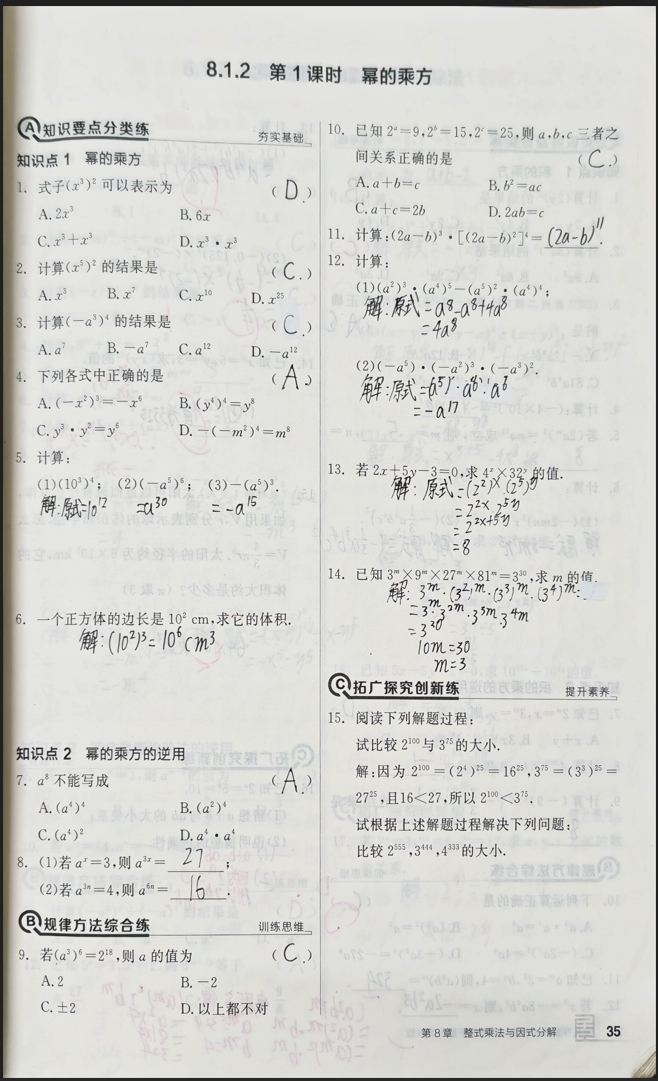 8.1.2 第1课时 幂的乘方
A 知识要点分类练 夯实基础
知识点1 幂的乘方
1. 式子(x³)²可以表示为 ( D )
A. 2x³ B. 6x
C. x⁵+x³ D. x³·x³
2. 计算(x⁵)²的结果是 ( C )
A. x³ B. x⁷ C. x¹⁰ D. x²⁵
3. 计算(-a³)⁴的结果是 ( C )
A. a⁷ B. -a⁷ C. a¹² D. -a¹²
4. 下列各式中正确的是 ( A )
A. (-x²)³=-x⁶ B. (y⁴)⁴=y⁸
C. y³·y²=y⁶ D. -(-m²)⁴=m⁸
5. 计算:
(1)(10³)⁴; (2)(-a⁵)⁶; (3)-(a⁵)³.
解:原式=10¹² =a³⁰ =-a¹⁵
6. 一个正方体的边长是10² cm,求它的体积.
解:(10²)³=10⁶cm³
知识点2 幂的乘方的逆用
7. a⁸不能写成 ( A )
A. (a⁴)⁴ B. (a²)⁴
C. (a⁴)² D. a⁴·a⁴
8. (1)若aˣ=3,则a³ˣ= 27 ;
(2)若a³ⁿ=4,则a⁶ⁿ= 16 .
B 规律方法综合练 训练思维
9. 若(a³)⁶=2¹⁸,则a的值为 ( C )
A. 2 B. -2
C. ±2 D. 以上都不对
10. 已知2ᵃ=9,2ᵇ=15,2ᶜ=25,则a,b,c三者之
间关系正确的是 ( C )
A. a+b=c B. b²=ac
C. a+c=2b D. 2ab=c
11. 计算:(2a-b)³·[(2a-b)²]⁴= (2a-b)¹¹.
12. 计算:
(1)(a²)³·(a⁴)⁵-(a⁵)²·(a⁴)⁴;
解:原式=a⁸-a⁸+4a⁸
=4a⁸
(2)(-a⁵)·(-a²)³·(-a³)².
=-a¹⁷
13. 若2x+5y-3=0,求4ˣ×32ʸ的值.
解:原式=(2²)ˣ·(2⁵)ʸ
=2²ˣ·2⁵ʸ
=2²ˣ⁺⁵ʸ
=8
14. 已知3ᵐ×9ᵐ×27ᵐ×81ᵐ=3³⁰,求m的值.
解:3ᵐ·(3²)ᵐ·(3³)ᵐ·(3⁴)ᵐ
=3ᵐ·3²ᵐ·3³ᵐ·3⁴ᵐ
=3³⁰
10m=30
m=3
C 拓广探究创新练 提升素养
15. 阅读下列解题过程:
试比较2¹⁰⁰与3⁷⁵的大小.
解:因为2¹⁰⁰=(2⁴)²⁵=16²⁵,3⁷⁵=(3³)²⁵=
27²⁵,且16<27,所以2¹⁰⁰<3⁷⁵.
试根据上述解题过程解决下列问题:
比较2⁵⁵⁵,3⁴⁴⁴,4³³³的大小.
第8章 整式乘法与因式分解 35